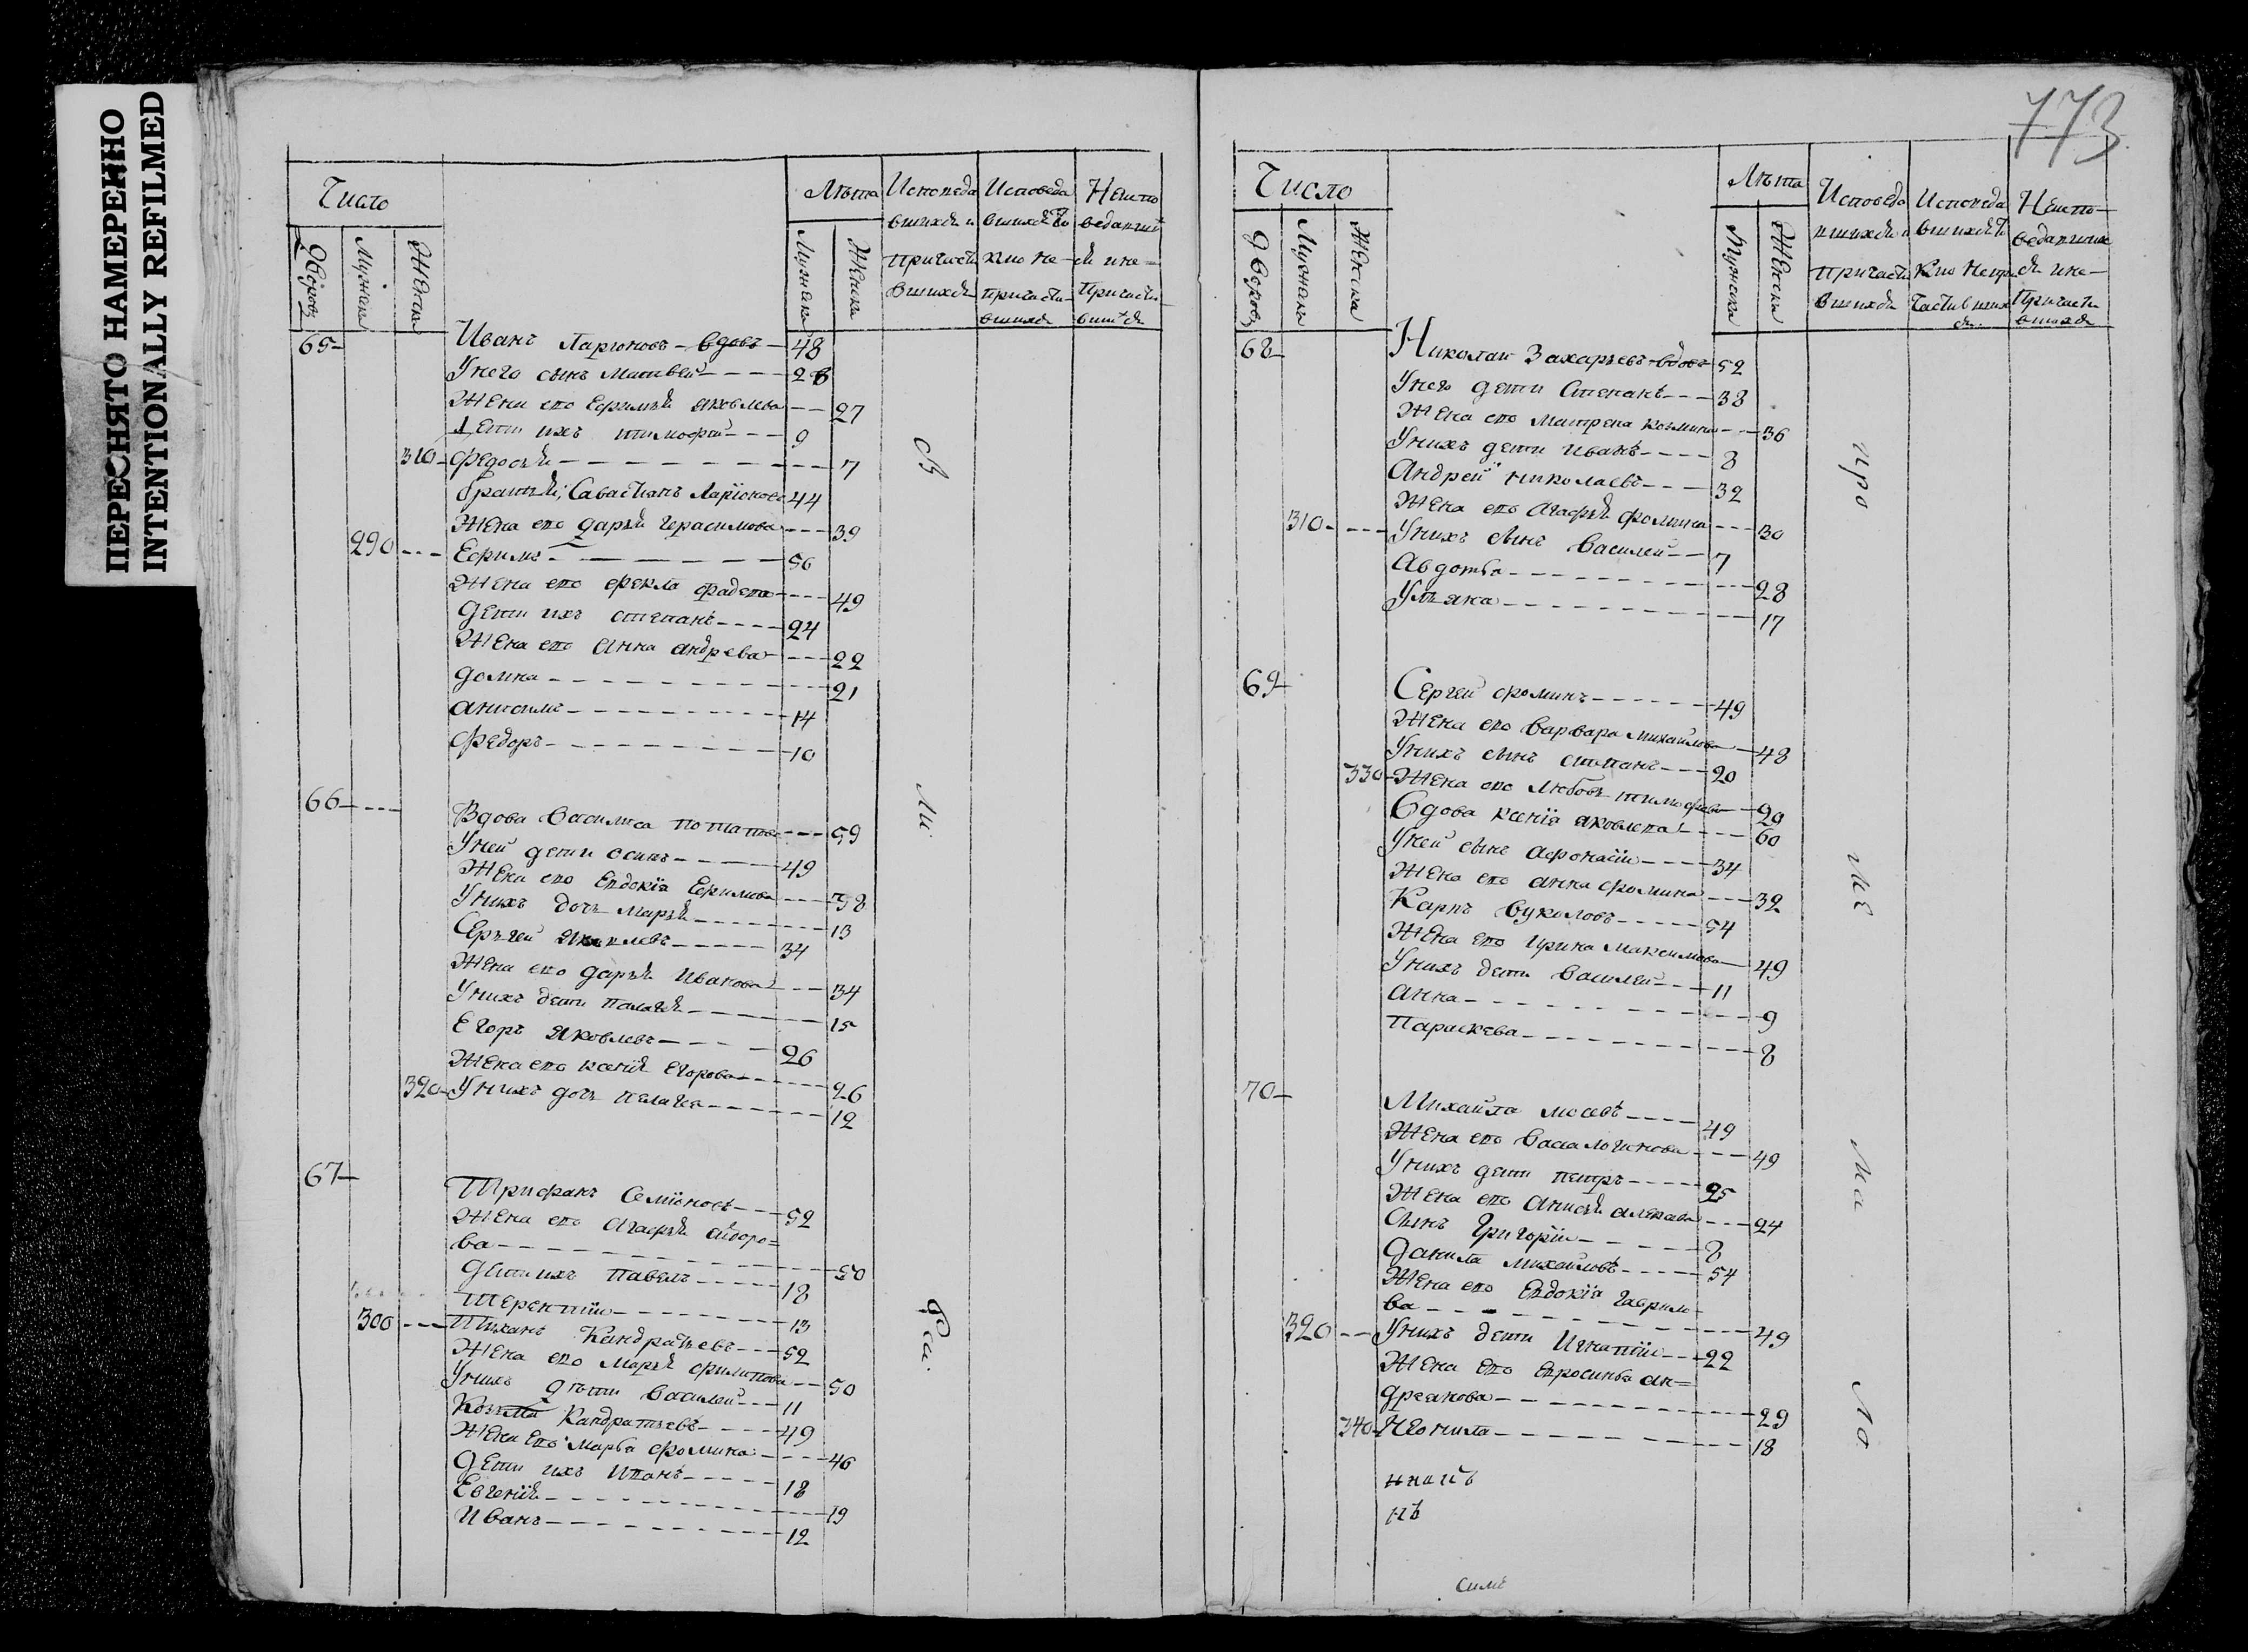 ПЕРЕСНЯТО НАМЕРЕННО
INTENTIONALLY REFILMED
Число
Лѣта
Исповеда
вшихся и
причасти
вшихся
Исповеда
вшихся то
кмо не
причасти
вшихся
Неиспо
ведавши
ся и не
причасти
вшихся
Дворовъ
Мужеска
Женска
Мужеска
Женска
65
Иванъ Ларионовъ вдовъ 48
У него сынъ Матвей
Жена его яковлева 27
Дети ихъ тимофей 9
310 Федосья 7
Савастьянъ Ларіоновъ 44
Жена его дарья герасимова 39
290 Ефимъ 56
Жена его фекла фадева 49
дети ихъ степанъ 24
Жена его Анна андрева 22
домна 21
анисимъ 14
Федоръ 10
66
Вдова Василиса потапова 59
У ней дети осипъ 49
Жена его Евдокія Ефимова 38
У нихъ дочь марья 13
Сергей 34
Жена его дарья Иванова 34
У нихъ дети палагея 15
Егоръ Яковлевъ 26
Жена его ксенія Егорова 26
320 У нихъ дочь пелагея 12
67
Трифанъ Семіоновъ 52
Жена его Агафья
ва 50
дети ихъ павелъ 18
Терентіи 13
300 Тиханъ Кандратьевъ 52
Жена его Марья филипова 50
У нихъ дети Василей 11
Козьма Кандратьевъ 49
Жена его марѳа фомина 46
дети ихъ Иванъ 18
Евгенія 19
Иванъ 12
773
Число
Лѣта
Исповеда
вшихся и
причасти
вшихся
Исповеда
вшихся то
кмо непри
частивших
ся
Неиспо
ведавших
ся и не
причасти
вшихся
Дворовъ
Мужеска
Женска
Мужеска
Женска
68
Николаи Захарьевъ вдовъ 52
У него дети Степанъ 38
Жена его Матрена козмина 36
У нихъ дети иванъ 8
Андрей николаевъ 32
Жена его Агафья фомина 30
310 У нихъ сынъ василей 7
Авдотья 28
Ульяна 17
69
Сергей фоминъ 49
Жена его варвара михаилова 48
У нихъ сынъ степанъ 20
330 Жена его любовь тимофева 20
Вдова ксенія яковлева 60
У ней сынъ афонасіи 34
Жена его анна фомина 32
Карпъ вуколовъ 54
Жена его ирина максимова 49
У нихъ дети василей 11
анна 9
Параскева 8
70
Михайла 49
Жена его 49
У нихъ дети петръ 25
Жена его Анисья 24
сынъ Григоріи 8
данила михаиловъ 54
Жена его Евдокія гаврило
ва 49
320 У нихъ дети Игнатіи 22
Жена его Ефросинья ан
дреянова 29
340 Неонила 18